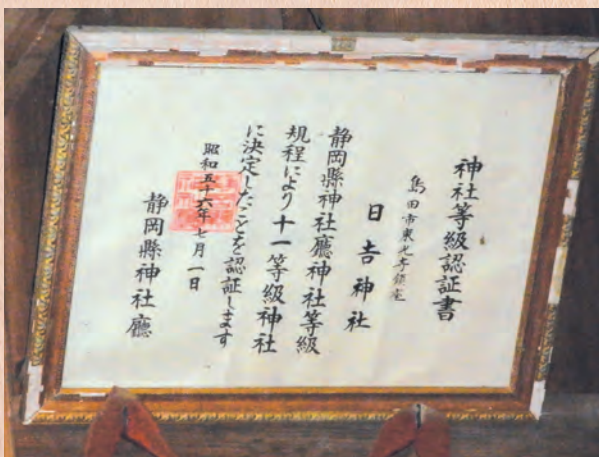 神社等級認証書
島田市東光寺鎮座
日吉神社
静岡縣神社廳神社等級
規程により十一等級神社
に決定したことを認証します
昭和五十六年七月一日
静岡縣神社廳